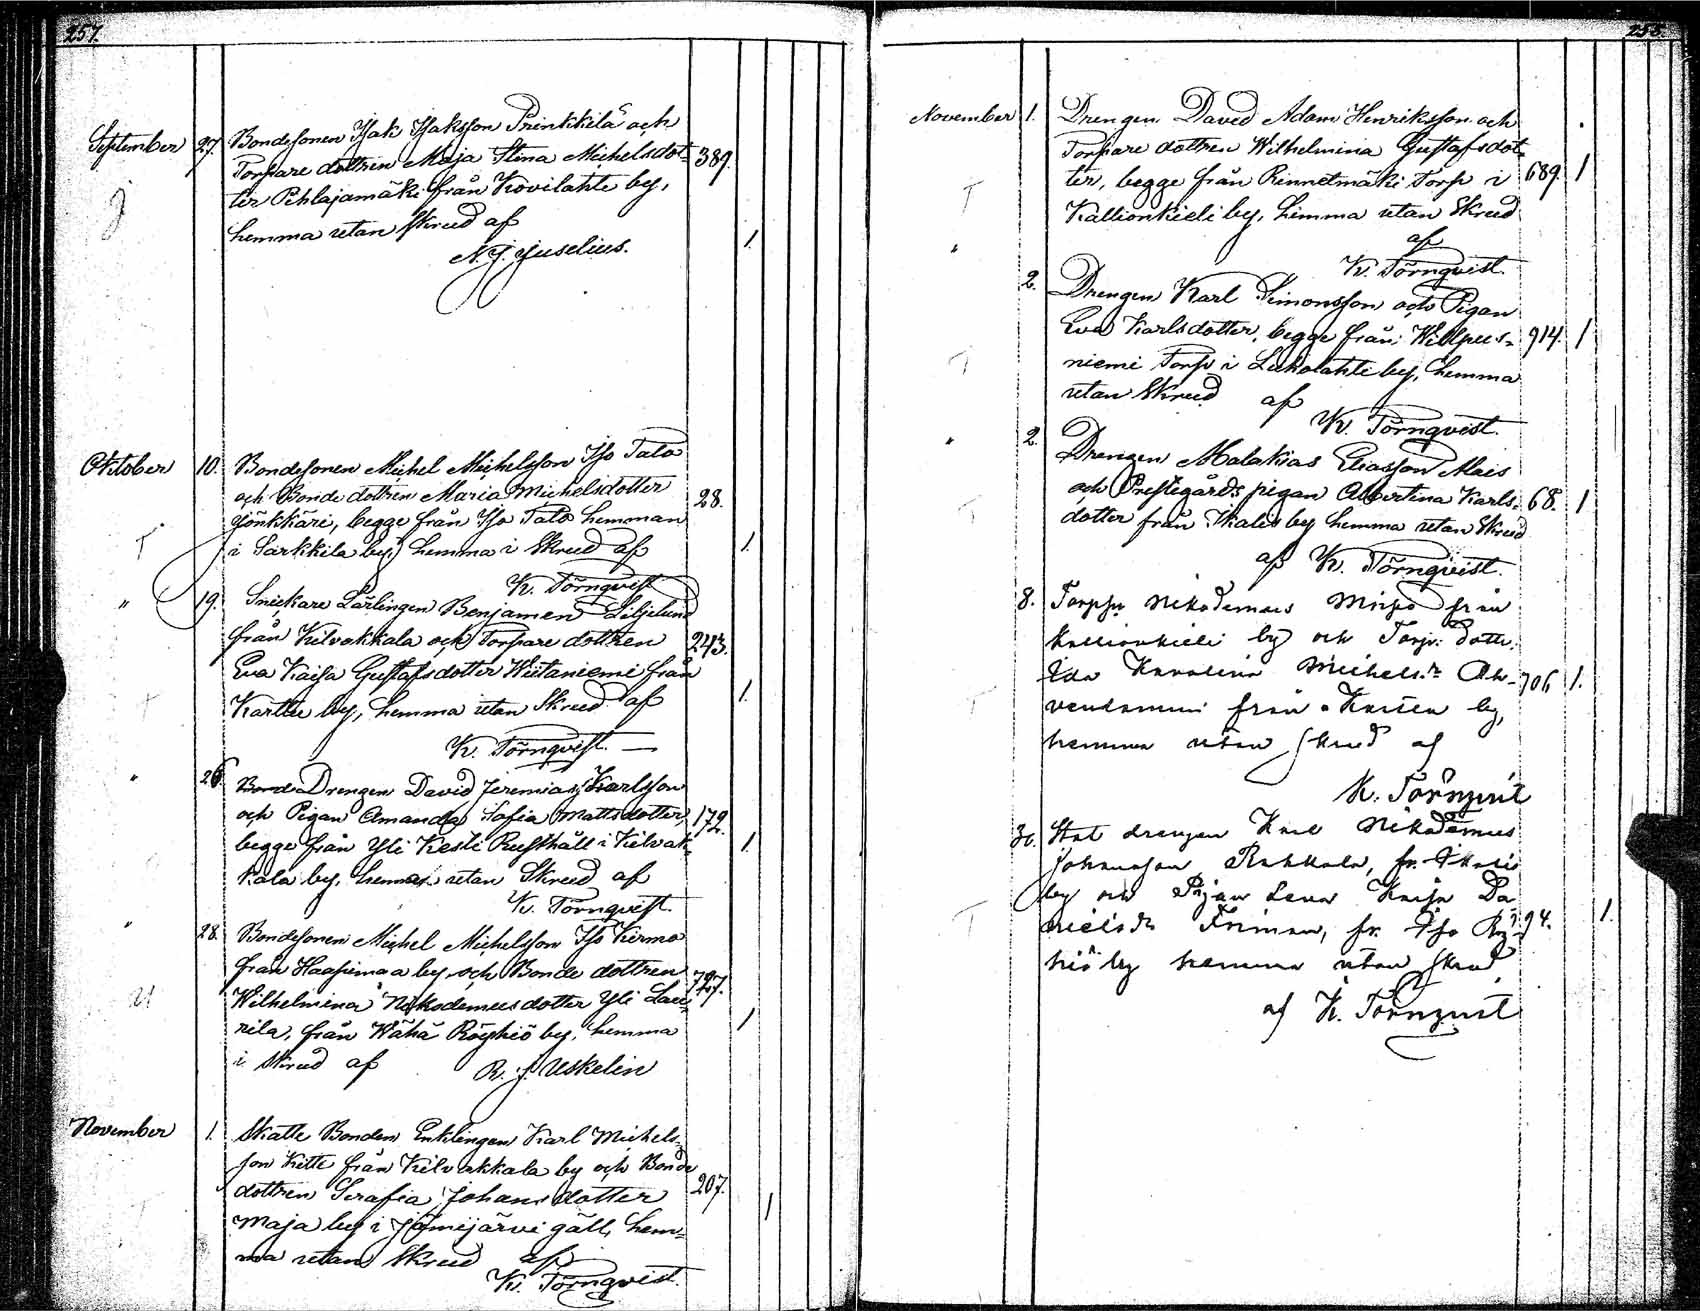 257.
September 27. Bondesonen Isak Isaksson Prinkkilä och
Torpare dottren Maja Stina Michelsdot- 389.
ter Pihlajamäki från Kovilahti by,
hemma utan Skrud af
N. J. Juselius. 1.
Oktober 10. Bondesonen Michel Michelsson Iso Talo
och Bonde dottren Maria Michelsdotter 28.
Jönkkäri, begge från Iso Talo hemman
i Sarkkila by, hemma i Skrud af 1.
K. Törnqvist
" 19. Snickare Lärlingen Benjamin Liljelund
från Kilvakkala och Torpare dottren 243.
Eva Kaisa Gustafsdotter Wiitaniemi från
Karttu by, hemma utan Skrud af 1.
K. Törnqvist.
" 26. Bonde Drengen David Jeremias Karlsson
och Pigan Amanda Sofia Mattsdotter, 172.
begge från Yli Kesti Rusthåll i Kilvak- 1.
kala by, hemma utan Skrud af
K. Törnqvist.
" 28. Bondesonen Michel Michelsson Iso Kirmo
från Haapimaa by och Bonde dottren 727.
Wilhelmina Nikodemusdotter Yli Lau-
rila, från Wähä Röyhiö by, hemma 1
i Skrud af R. J. Uskelin
November 1. Skatte Bonden Enklingen Karl Michels-
son Kitti från Kilvakkala by och Bonde
dottren Serafia Johansdotter 207.
Maja by i Jämijärvi gäll, hem- 1
ma utan Skrud af
K. Törnqvist.
258.
November 1. Drengen David Adam Henriksson och
Torpare dottren Wilhelmina Gustafsdot-
ter, begge från Rinnetmäki Torp i 689. 1
Kallionkieli by, hemma utan Skrud
af
K. Törnqvist.
" 2. Drengen Karl Simonsson och Pigan
Eva Karlsdotter, begge från Willpus- 914. 1
niemi Torp i Luholahti by, hemma
utan Skrud af
K. Törnqvist.
" 2. Drengen Malakias Eliasson Mais
och Prestegårds pigan Albertina Karls- 68. 1
dotter från Ikalis by hemma utan Skrud
af K. Törnqvist.
8. Nikodemus från
Kallionkieli by och Torp. dottr.
Ida Karolina Michels.dr 706 1.
från Karttu by,
hemma utan Skrud af
K. Törnqvist
30. Stat drengen Karl Nikodemus
Johansson Rahkola, fr. Ikalis
by och Pigan Lena Kaisa Da-
nielsdr Friman, fr. Iso Röy- 94. 1.
hiö by hemma utan Skrud
af K. Törnqvist